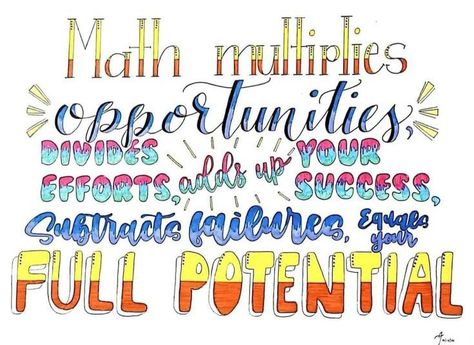 Math multiplies
opportunities,
DIVIDES
EFFORTS, adds up YOUR
SUCCESS,
Subtracts failures, Equals
your
FULL POTENTIAL